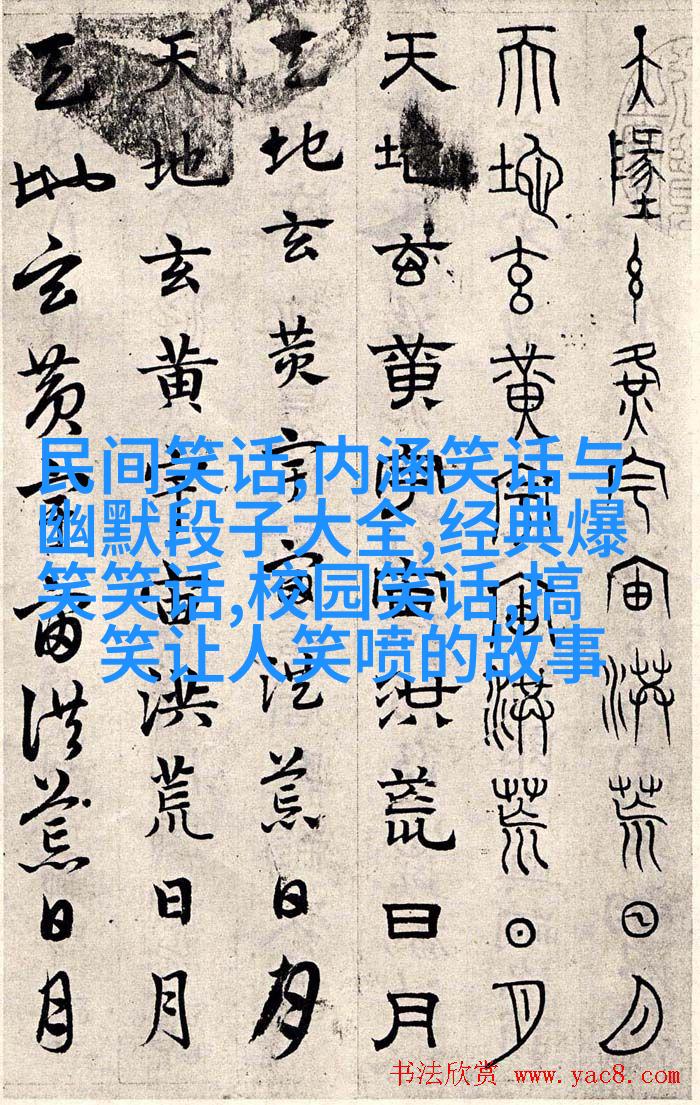 天地玄黃宇宙洪荒日月
天地玄黃宇宙洪荒日月
天地玄黃宇宙洪荒日月
天地玄黃宇宙洪荒日月
天地玄黃宇宙洪荒日月
天地玄黃宇宙洪荒日月
民间笑话,内涵笑话与
幽默段子大全,经典爆
笑笑话,校园笑话,搞
笑让人笑喷的故事
书法欣赏 www.yac8.com